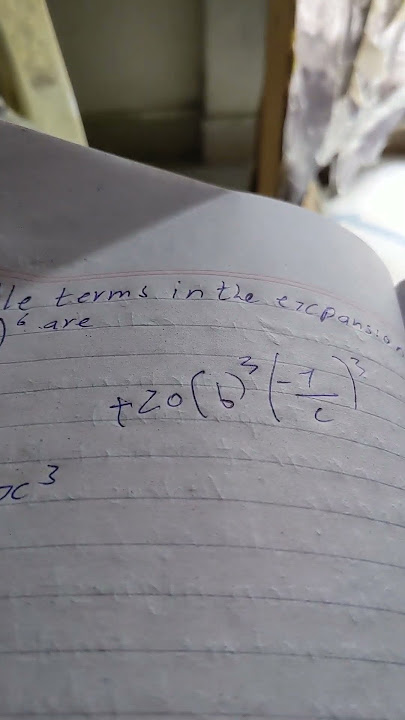 le terms in the expansion
)⁶ are
+20(b)³(-1/c)³
x³